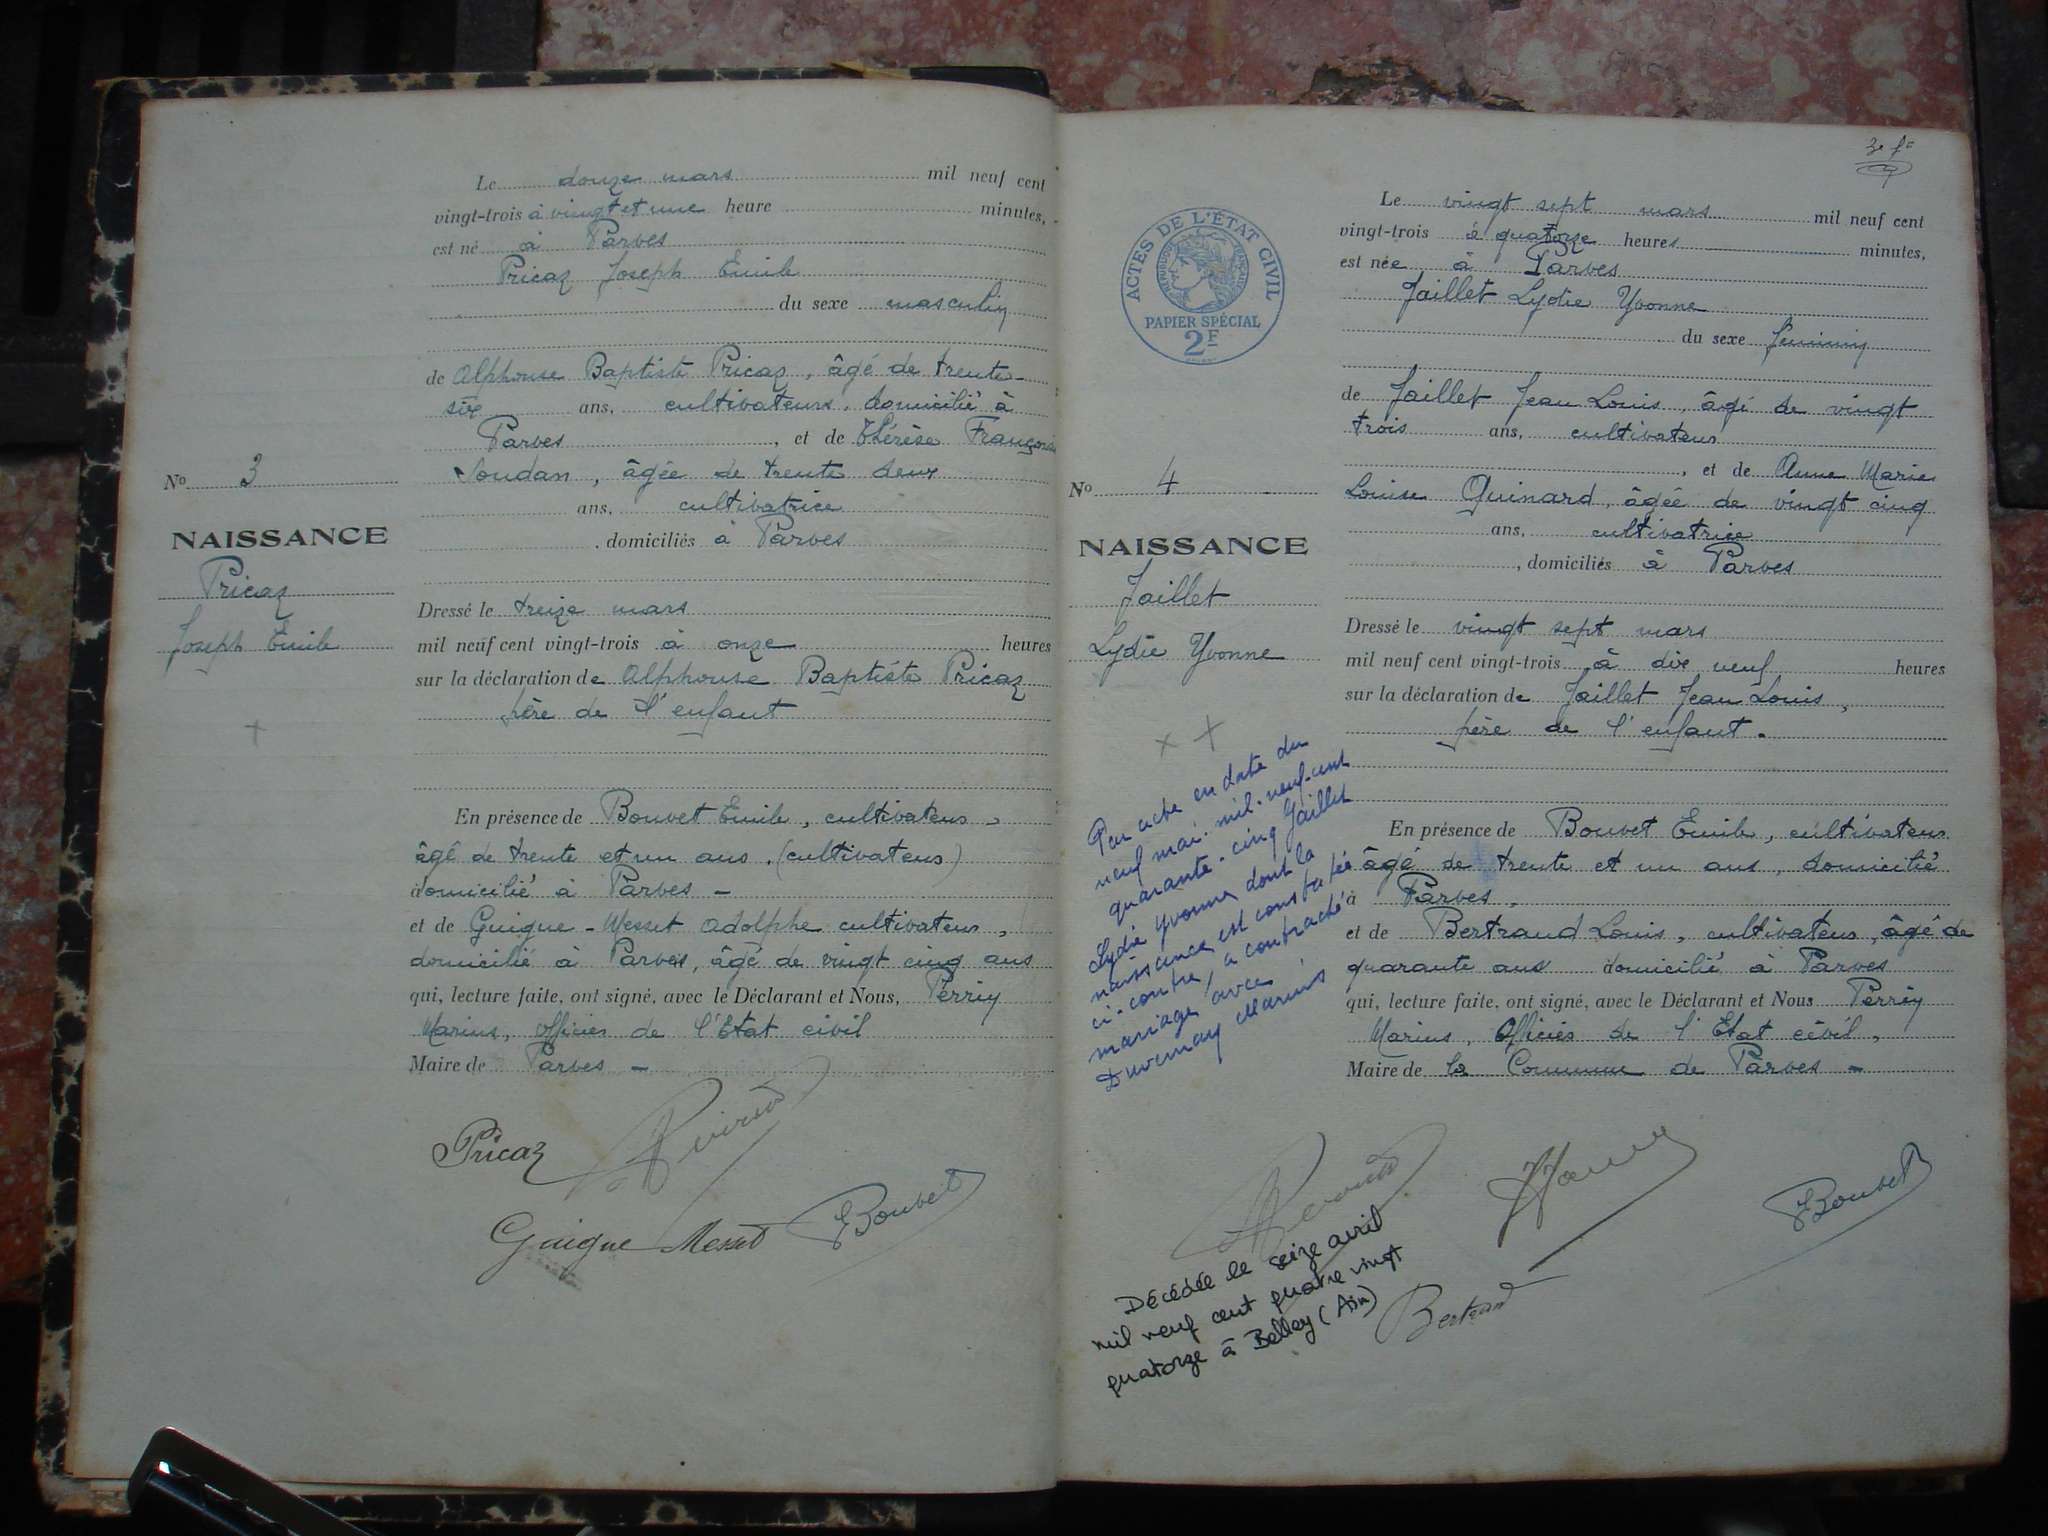 Le douze mars mil neuf cent
vingt-trois à vingt et une heure minutes,
est né à Parves
Pricaz Joseph Emile
du sexe masculin
de Alphonse Baptiste Pricaz, âgé de trente-
six ans, cultivateur, domicilié à
Parves, et de Thérèse Françoise
Soudan, âgée de trente deux
ans, cultivatrice
, domiciliés à Parves
Dressé le treize mars
mil neuf cent vingt-trois à onze heures
sur la déclaration de Alphonse Baptiste Pricaz
père de l'enfant
En présence de Bouvet Emile, cultivateur,
âgé de trente et un ans, (cultivateur)
domicilié à Parves -
et de Guigue-Messet Adolphe cultivateur,
domicilié à Parves, âgé de vingt cinq ans
qui, lecture faite, ont signé, avec le Déclarant et Nous, Perrin
Marius, officier de l'Etat civil
Maire de Parves -
Pricaz
Guigue Messet Bouvet
No 3
NAISSANCE
Pricaz
Joseph Emile
3e fo
ACTES DE L'ÉTAT CIVIL
RÉPUBLIQUE FRANÇAISE
PAPIER SPÉCIAL
2F
Le vingt sept mars mil neuf cent
vingt-trois à quatorze heures minutes,
est née à Parves
Jaillet Lydie Yvonne
du sexe féminin
de Jaillet Jean Louis, âgé de vingt
trois ans, cultivateur
, et de Anne Marie
Louise Quinard, âgée de vingt cinq
ans, cultivatrice
, domiciliés à Parves
Dressé le vingt sept mars
mil neuf cent vingt-trois à dix neuf heures
sur la déclaration de Jaillet Jean Louis,
père de l'enfant.
En présence de Bouvet Emile, cultivateur
âgé de trente et un ans, domicilié
à Parves,
et de Bertrand Louis, cultivateur, âgé de
quarante ans domicilié à Parves
qui, lecture faite, ont signé, avec le Déclarant et Nous Perrin
Marius, Officier de l'Etat civil,
Maire de la Commune de Parves -
Bouvet
Bertrand
No 4
NAISSANCE
Jaillet
Lydie Yvonne
Par acte en date du
neuf mai mil-neuf-cent
quarante-cinq Jaillet
Lydie Yvonne dont la
naissance est constatée
ci-contre, a contracté
mariage avec
Duvernay Marius
Décédée le seize avril
mil neuf cent quatre vingt
quatorze à Belley (Ain)